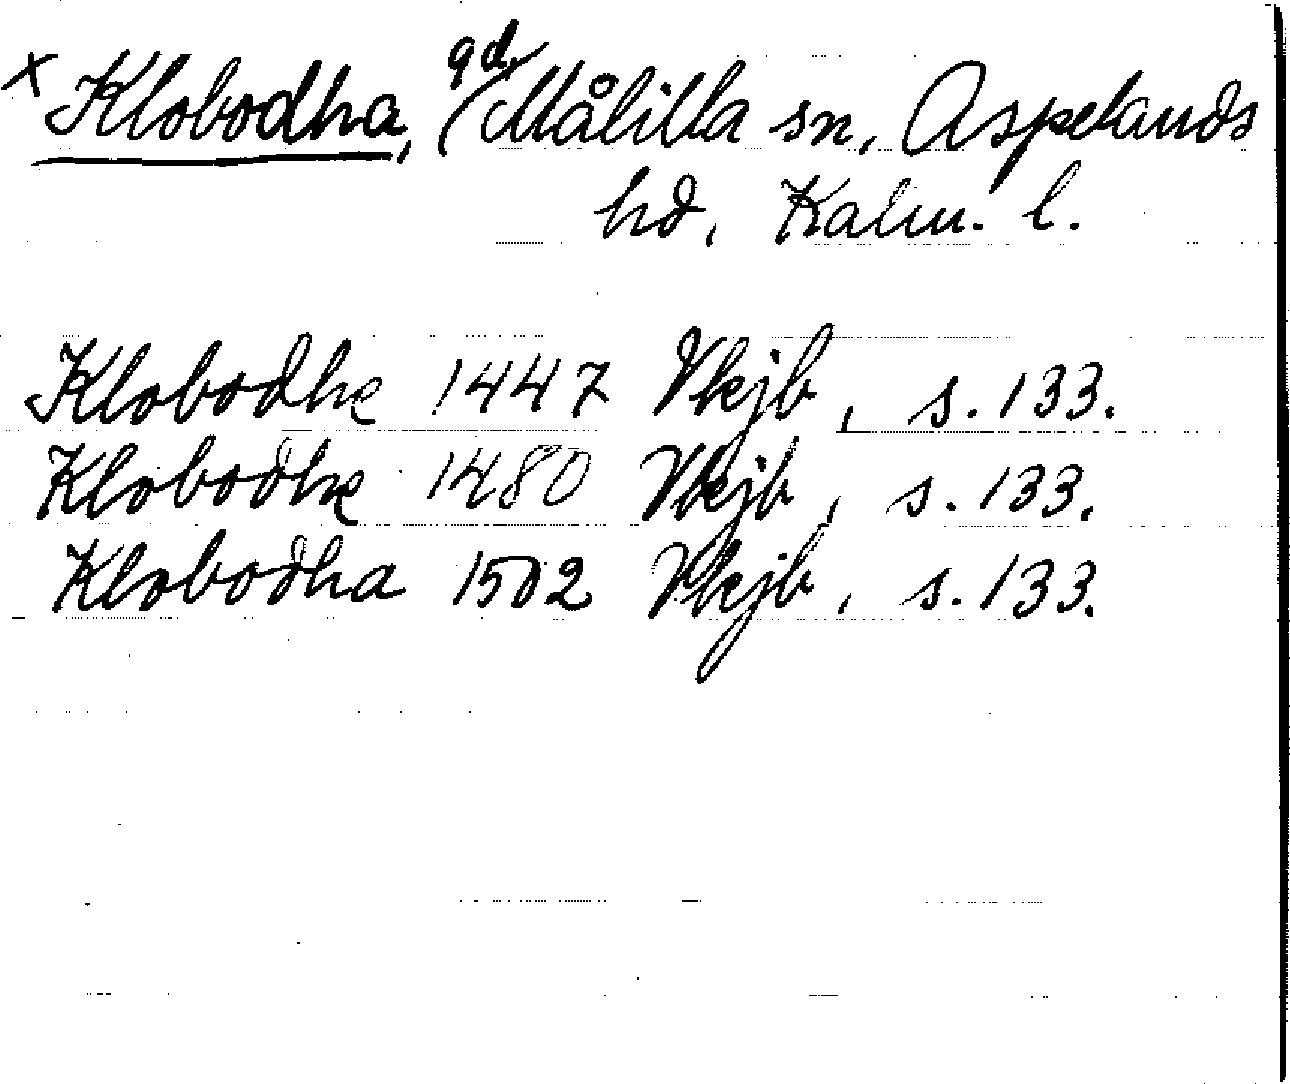 x Klobodha, gd, Målilla sn, Aspelands
hd, Kalm. l.
Klobodhe 1447 Vkjb, s. 133.
Klobodhe 1480 Vkjb, s. 133.
Klobodha 1502 Vkjb, s. 133.